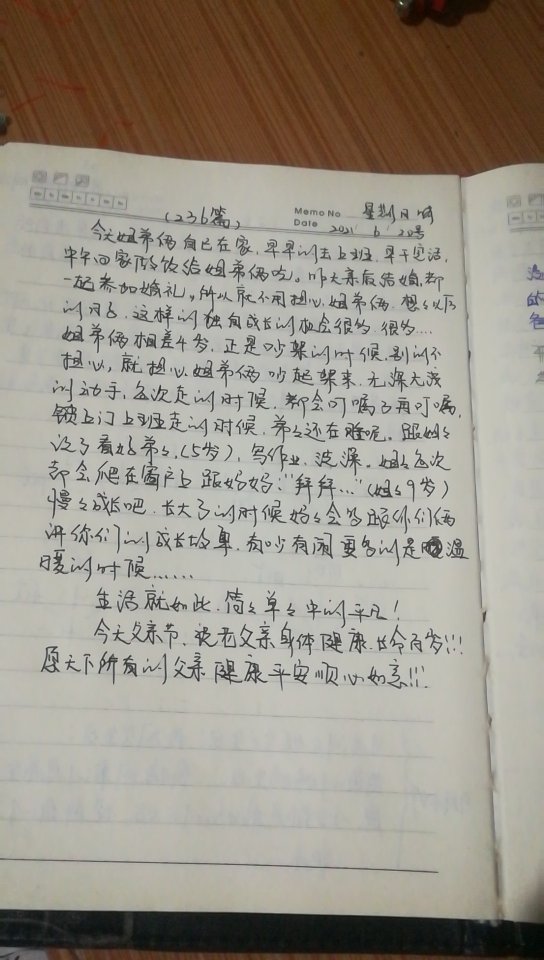 (236篇)
Memo No. 星期日 晴
Date 2021 6 20号
今天姐弟俩自己在家,早早的去上班,早干完活,
中午回家做饭给姐弟俩吃。昨天亲戚结婚,都
一起参加婚礼,所以就不用担心姐弟俩,想以后
的日子,这样的独自成长的机会很多,很多....
姐弟俩相差4岁,正是吵架的时候,别的不
担心,就担心姐弟俩吵起架来,无深无浅
的动手,每次走的时候,都会叮嘱了再叮嘱,
锁上门上班走的时候,弟弟还在睡呢。跟姐姐
说了看好弟弟,(5岁),写作业,洗澡。姐姐每次
都会爬在窗户上跟妈妈:"拜拜..."(姐姐9岁)
慢慢成长吧,长大了的时候妈妈会多跟你们俩
讲你们的成长故事,有吵有闹更多的是温
暖的时候......
生活就如此,简简单单中的平凡!
今天父亲节,祝老父亲身体健康,长命百岁!!!
愿天下所有的父亲健康平安顺心如意!!!